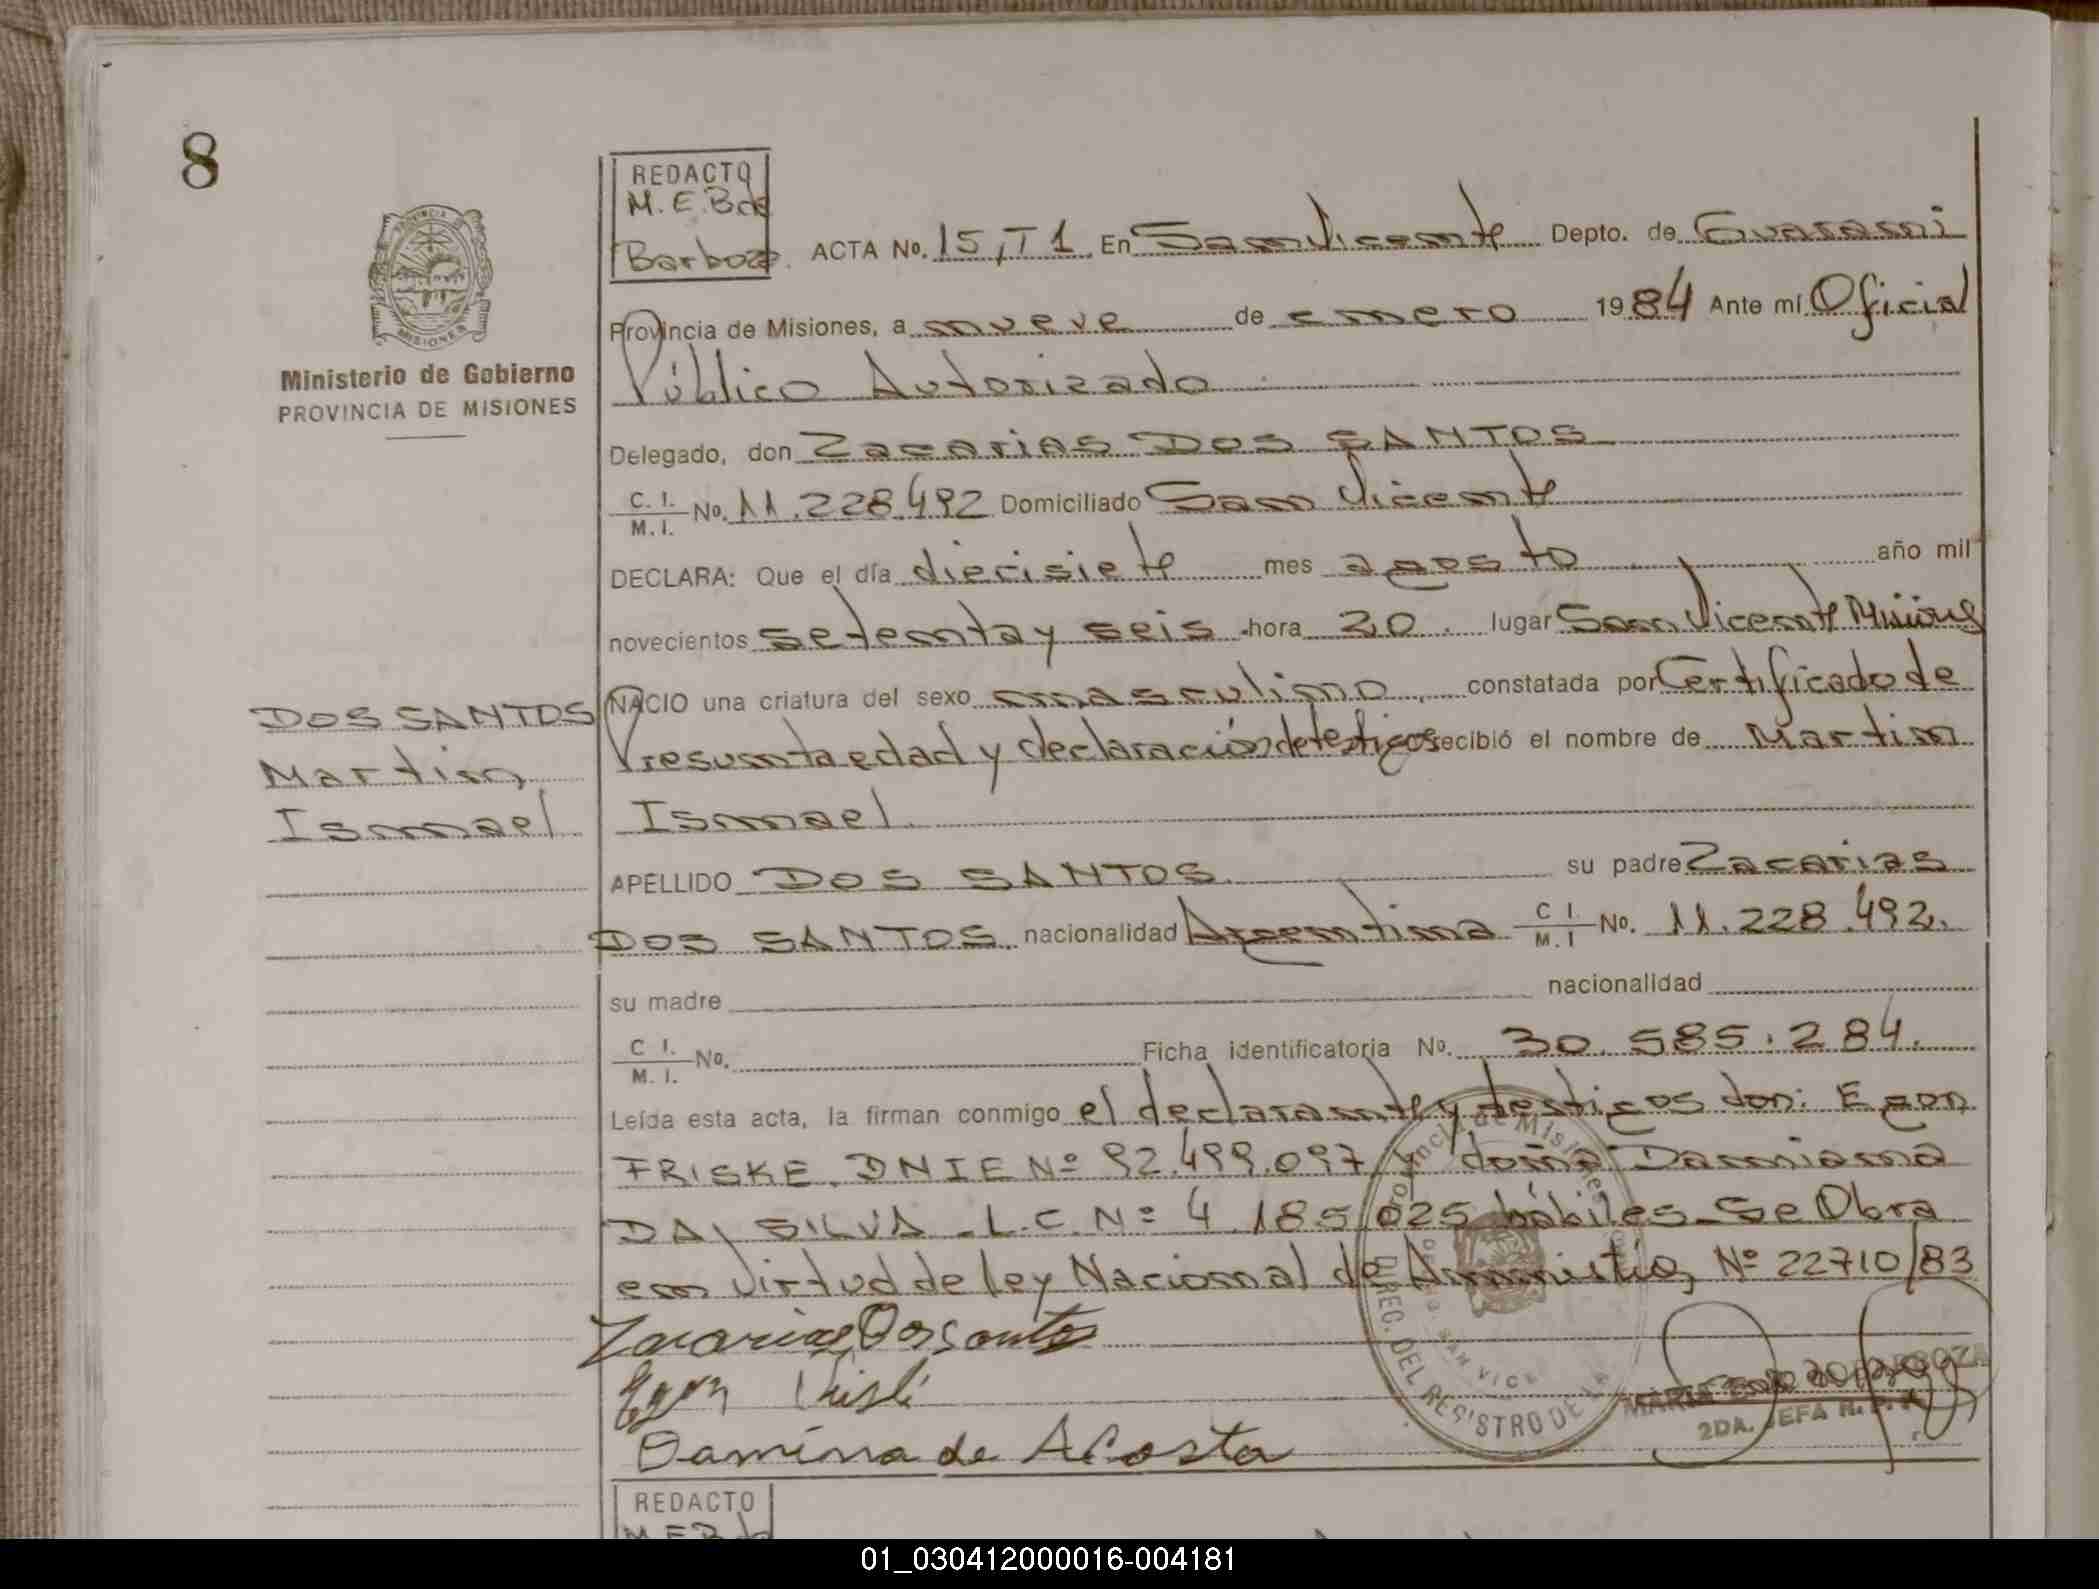 8
REDACTO
M. E. B de
Barboza.
ACTA No. 15, T 1 En San Vicente Depto. de Guarani
Provincia de Misiones, a nueve de enero 1984 Ante mí Oficial
Público Autorizado
Ministerio de Gobierno
PROVINCIA DE MISIONES
Delegado, don Zacarias DOS SANTOS
C. I.
M. I. No. 11.228.492 Domiciliado San Vicente
DECLARA: Que el día diecisiete mes agosto año mil
novecientos setenta y seis hora 20. lugar San Vicente Misiones
NACIO una criatura del sexo masculino, constatada por Certificado de
Presunta edad y declaración de testigos recibió el nombre de Martin
Ismael
DOS SANTOS
Martin
Ismael
APELLIDO DOS SANTOS. su padre Zacarias
DOS SANTOS. nacionalidad Argentina C I.
M. I No. 11.228.492.
su madre nacionalidad
C I.
M. I. No. Ficha identificatoria No. 30.585.284.
Leída esta acta, la firman conmigo el declarante y testigos don: Egon
FRISKE. DNIE Nº 92.499.097 y doña Damiana
DA SILVA - L.C. Nº 4.185.025 hábiles - Se Obra
en virtud de ley Nacional de Amnistia, Nº 22710/83
Zacarias Dos santos
Egon
Damina de Acosta
Provincia de Misiones
DIREC. DEL REGISTRO DE LA
SAN VICE
MARIA BARBOZA
2DA. JEFA R. P.
REDACTO
M. E. B de
01_030412000016-004181